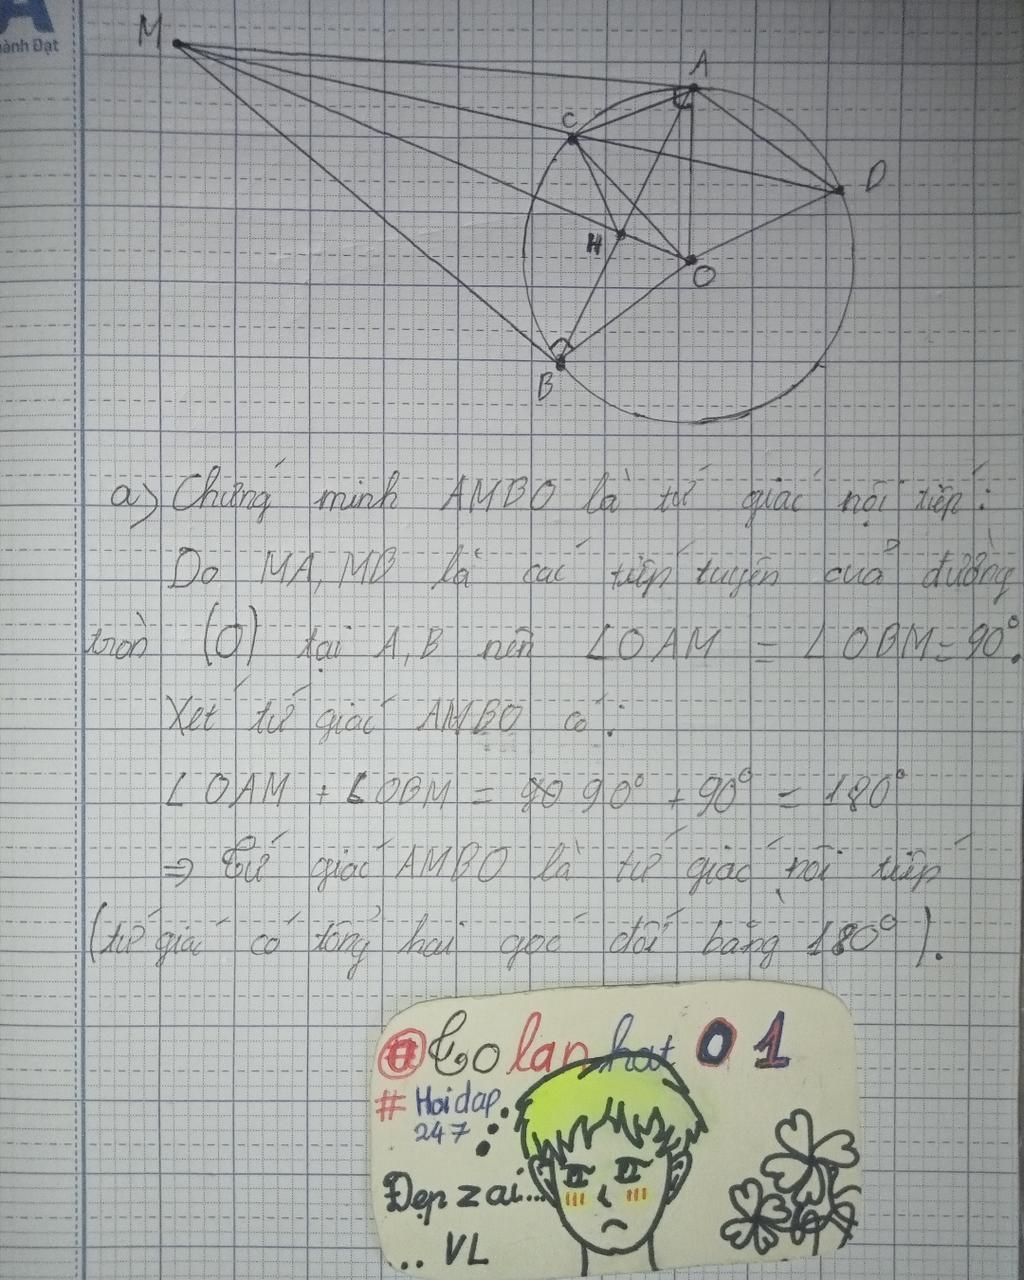 A
ành Đạt
M
A
C
D
H
O
B
a) Chứng minh AMBO là tứ giác nội tiếp:
Do MA, MB là các tiếp tuyến của đường
tròn (O) tại A, B nên ∠OAM = ∠OBM = 90°.
Xét tứ giác AMBO có:
∠OAM + ∠OBM = 90° + 90° = 180°
⇒ Tứ giác AMBO là tứ giác nội tiếp
(tứ giác có tổng hai góc đối bằng 180°).
@Tolanhat01
# Hoidap
247
Đẹp zai...
.. VL